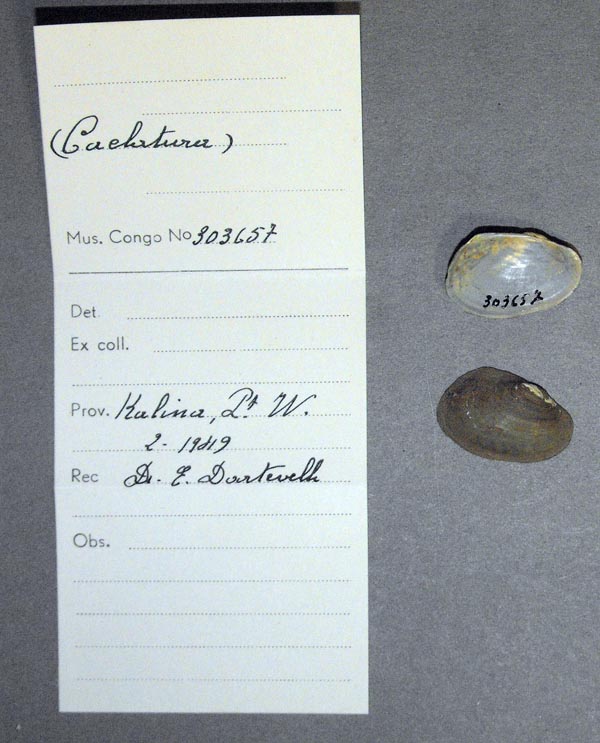 (Caelatura)
Mus. Congo No 303657
Det.
Ex coll.
Prov. Kalina, Pt W.
2-1949
Rec Dr. E. Dartevelle
Obs.
303657